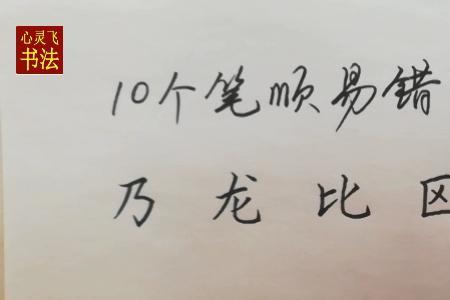 心灵飞
书法
10个笔顺易错
乃龙比区